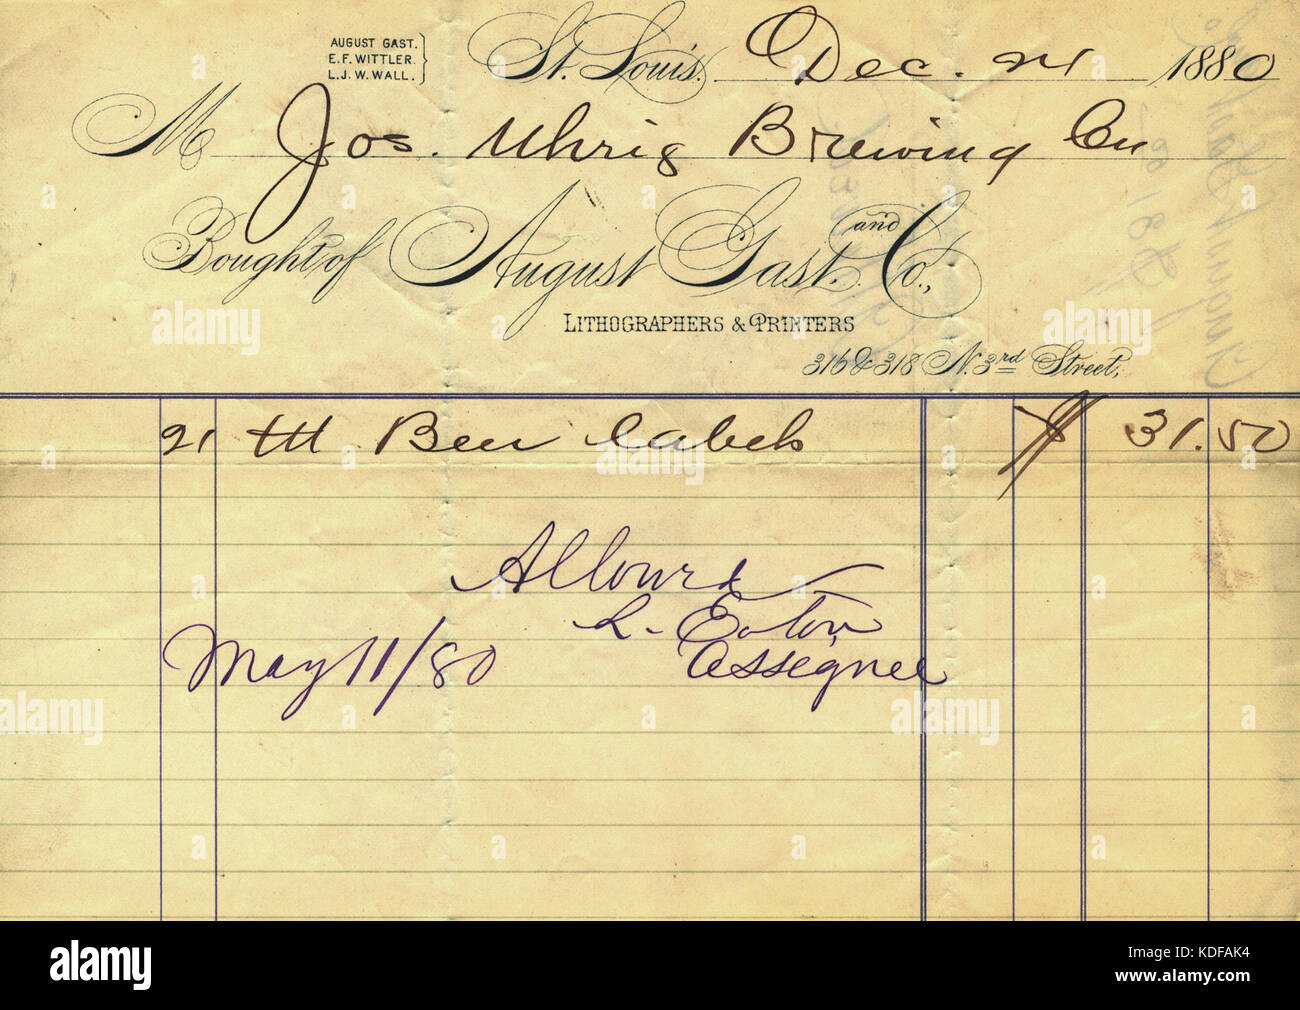 AUGUST GAST.
E.F. WITTLER.
L.J.W. WALL.
St. Louis. Dec. 24 1880
M Jos. Uhrig Brewing Co
Bought of August Gast. and Co.,
LITHOGRAPHERS & PRINTERS
316 & 318 N. 3rd Street,
21 M Beer Labels $ 31.50
Allowed
L. Eaton
May 11/80 Assignee
alamy
KDFAK4
www.alamy.com